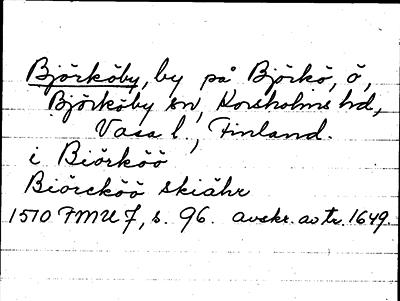 Björköby, by på Björkö, ö,
Björköby sn, Korsholms hd,
Vasa l., Finland.
i Biörköö
Biörcköö skiähr
1510 FMU 7, s. 96. avskr. av tr. 1649.